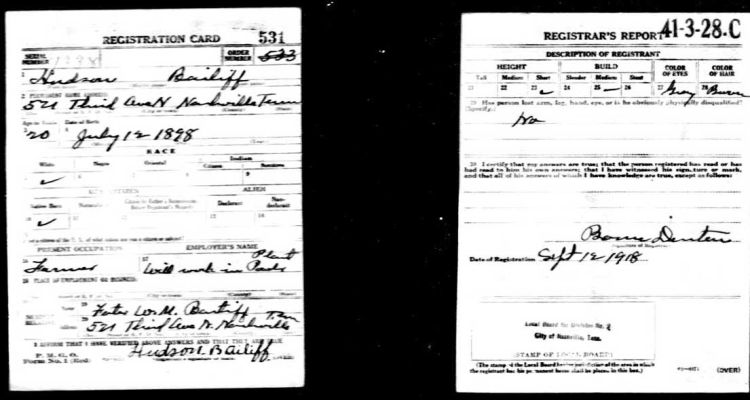 REGISTRATION CARD 531
SERIAL NUMBER 1398 ORDER NUMBER 533
Hudson Bailiff
2 PERMANENT HOME ADDRESS:
521 Third Ave N Nashville Tenn
Age in Years Date of Birth
20 July 12 1898
RACE
White Negro Oriental Indian
Citizen
✓
ALIEN
Native Born Declarant Non-declarant
✓
PRESENT OCCUPATION EMPLOYER'S NAME
Farmer Will work in Powder Plant
PLACE OF EMPLOYMENT OR BUSINESS:
Name Father W. M. Bailiff
Address 521 Third Ave N. Nashville Tenn
I AFFIRM THAT I HAVE VERIFIED ABOVE ANSWERS AND THAT THEY ARE TRUE
P. M. G. O.
Form No. 1 (Red) Hudson Bailiff
REGISTRAR'S REPORT 41-3-28-C
DESCRIPTION OF REGISTRANT
HEIGHT BUILD COLOR OF EYES COLOR OF HAIR
Tall Medium Short Slender Medium Stout
21 22 23 ✓ 24 25 — 26 27 Gray 28 Brown
29 Has person lost arm, leg, hand, eye, or is he obviously physically disqualified?
(Specify.)
No
30 I certify that my answers are true; that the person registered has read or has
had read to him his own answers; that I have witnessed his signature or mark,
and that all of his answers of which I have knowledge are true, except as follows:
Date of Registration Sept 12 1918
Local Board for Division No. 2
City of Nashville, Tenn.
(STAMP OF LOCAL BOARD)
(The stamp of the Local Board having jurisdiction of the area in which
the registrant has his permanent home shall be placed in this box.)
(OVER)